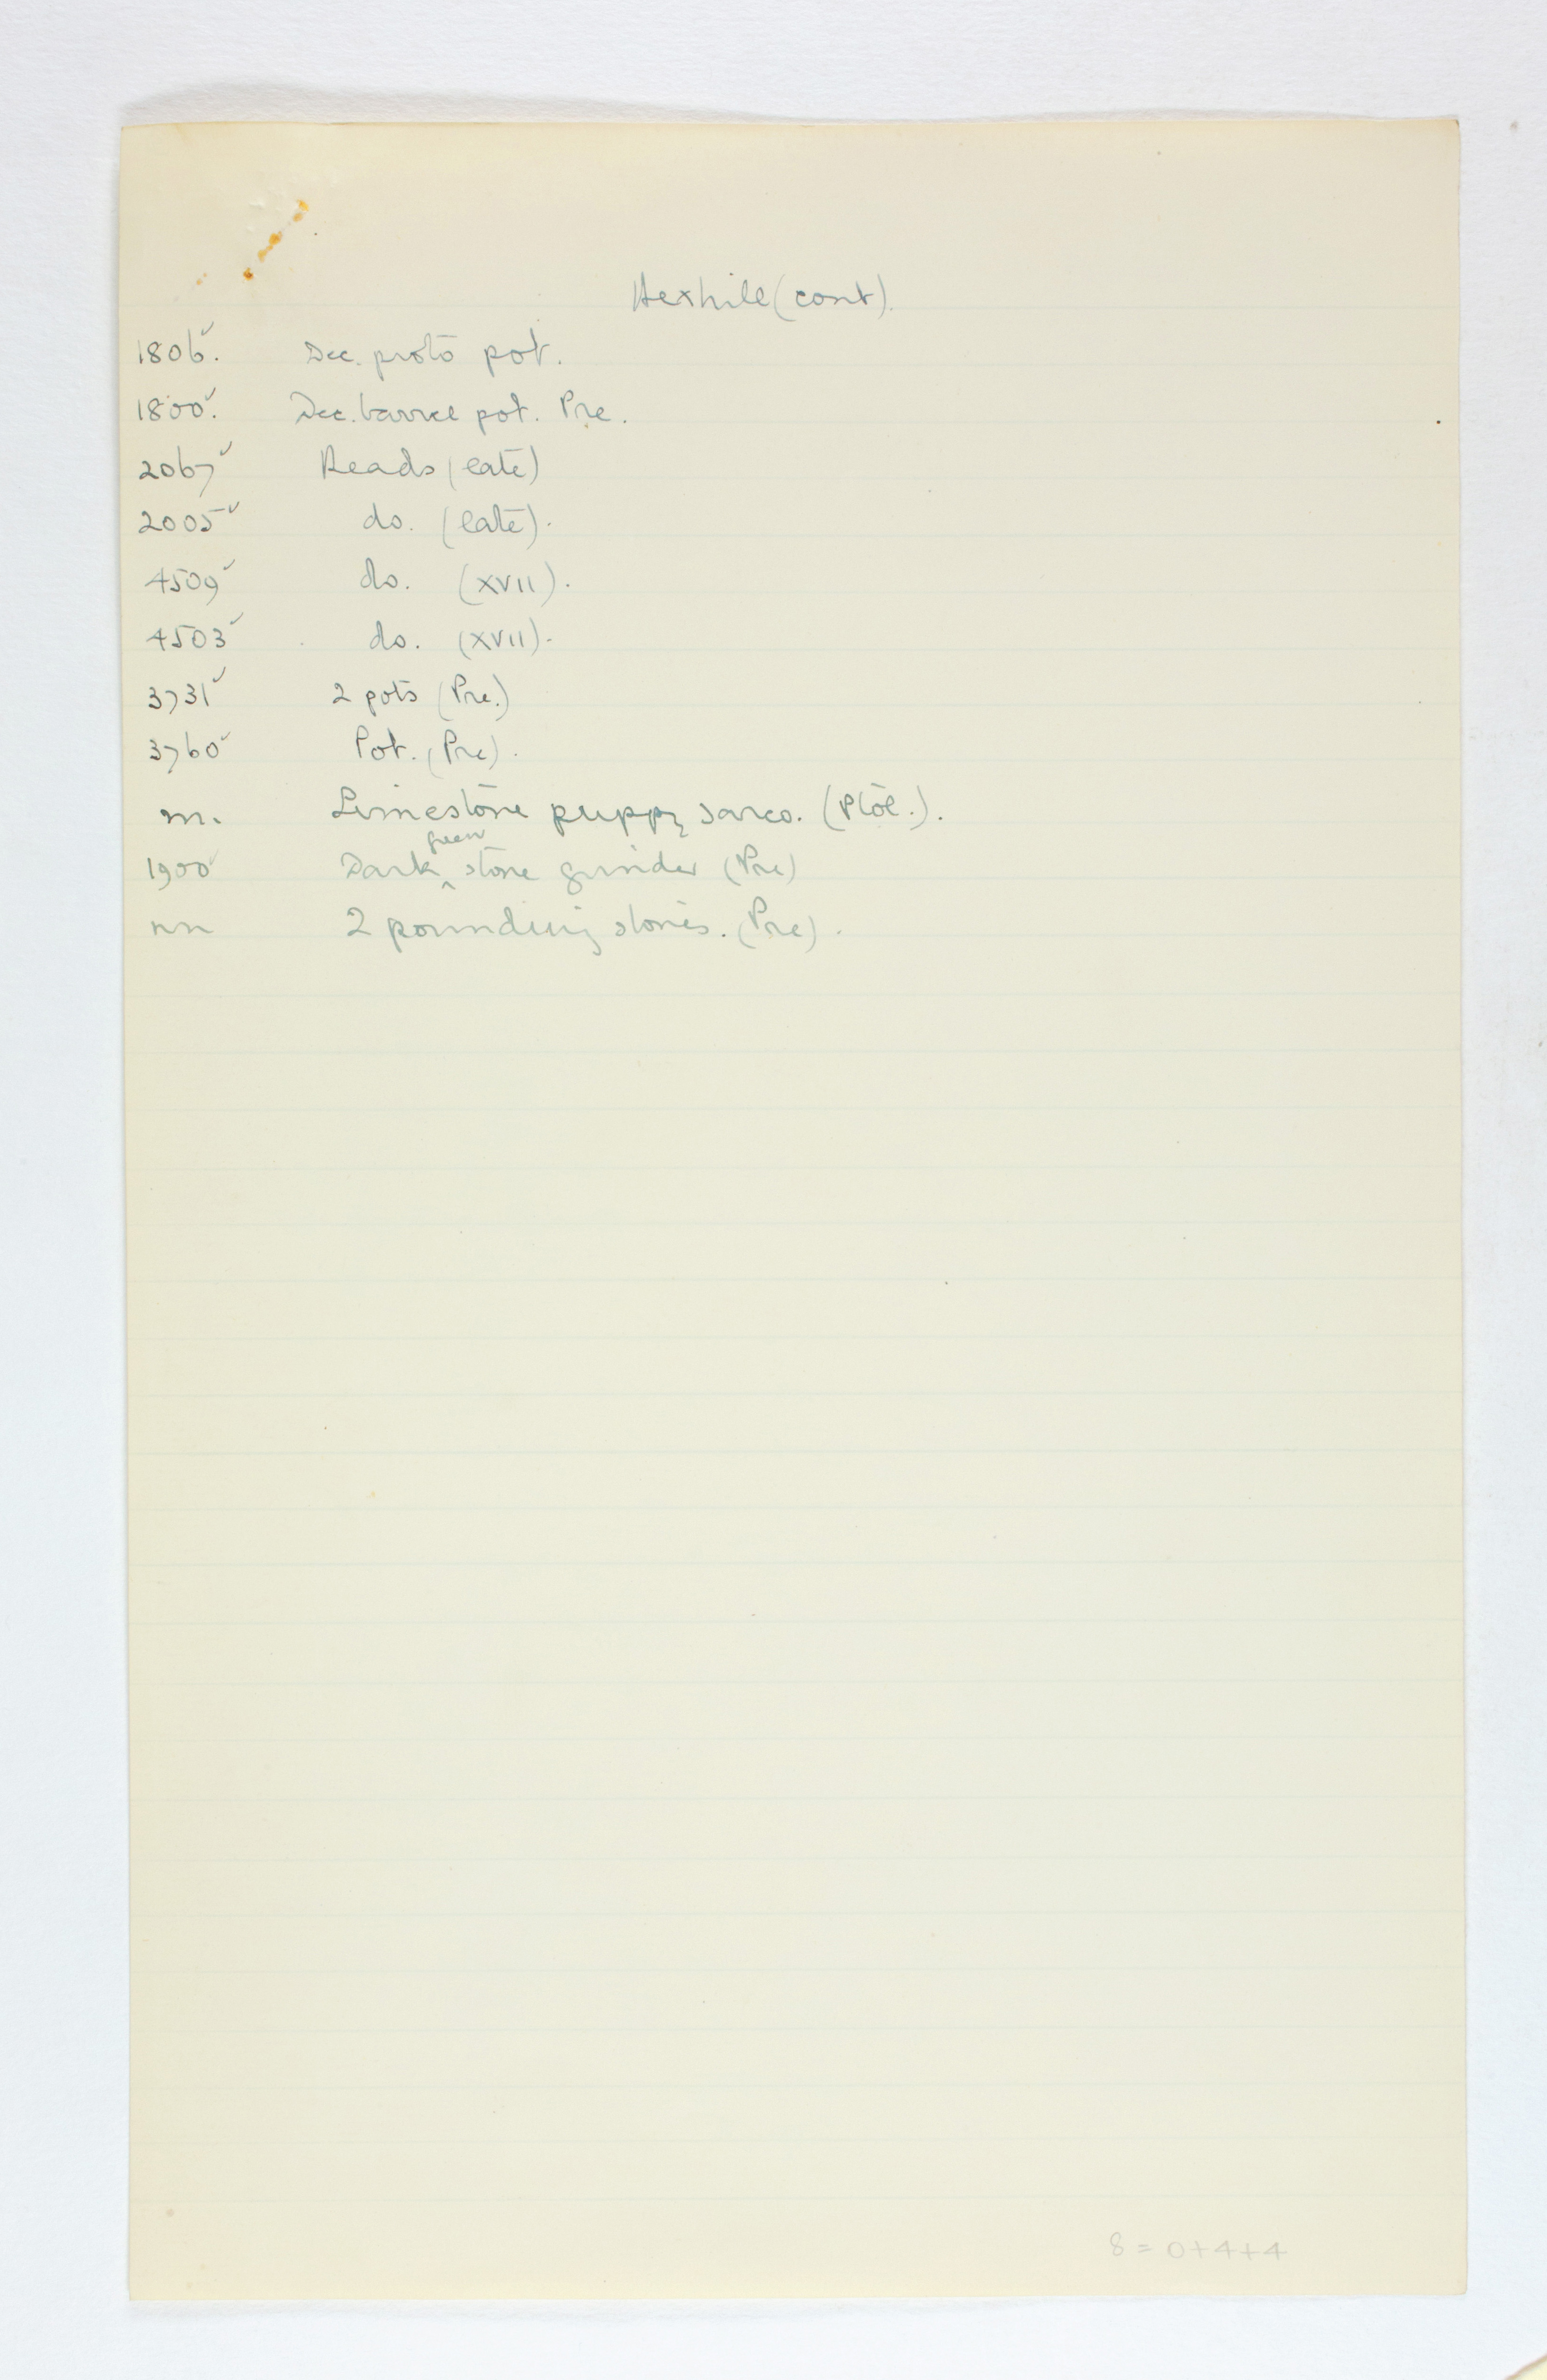 Hexhill (cont).
1806. ✓ Dec. proto pot.
1800. ✓ Dec. barrel pot. Pre.
2067 ✓ Beads (late)
2005 ✓ do. (late).
4509 ✓ do. (XVII).
4503 ✓ do. (XVII).
3731 ✓ 2 pots (Pre.)
3760 ✓ Pot. (Pre).
nn. Limestone puppy sarco. (Ptol.).
1900 ✓ Dark ^green stone grinder (Pre)
nn 2 pounding stones. (Pre).
8 = 0+4+4